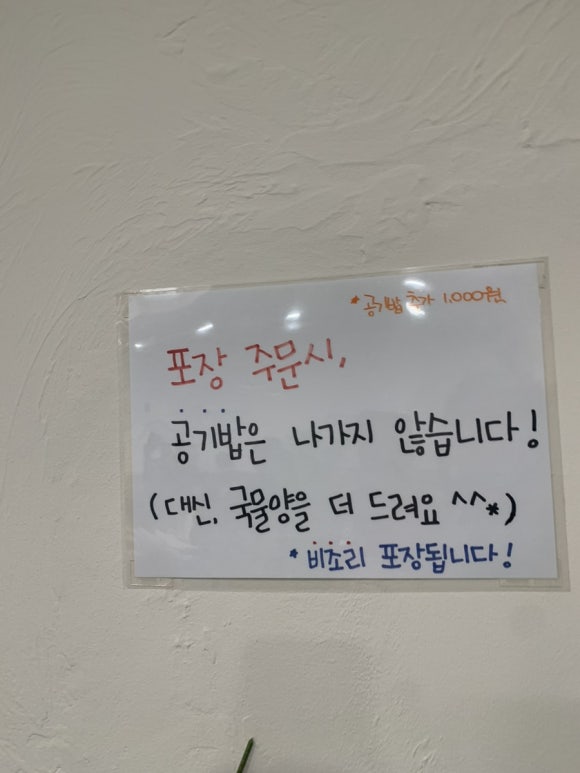 * 공기밥 추가 1,000원
포장 주문시,
공기밥은 나가지 않습니다!
(대신, 국물양을 더 드려요 ^^*)
* 비조리 포장됩니다!